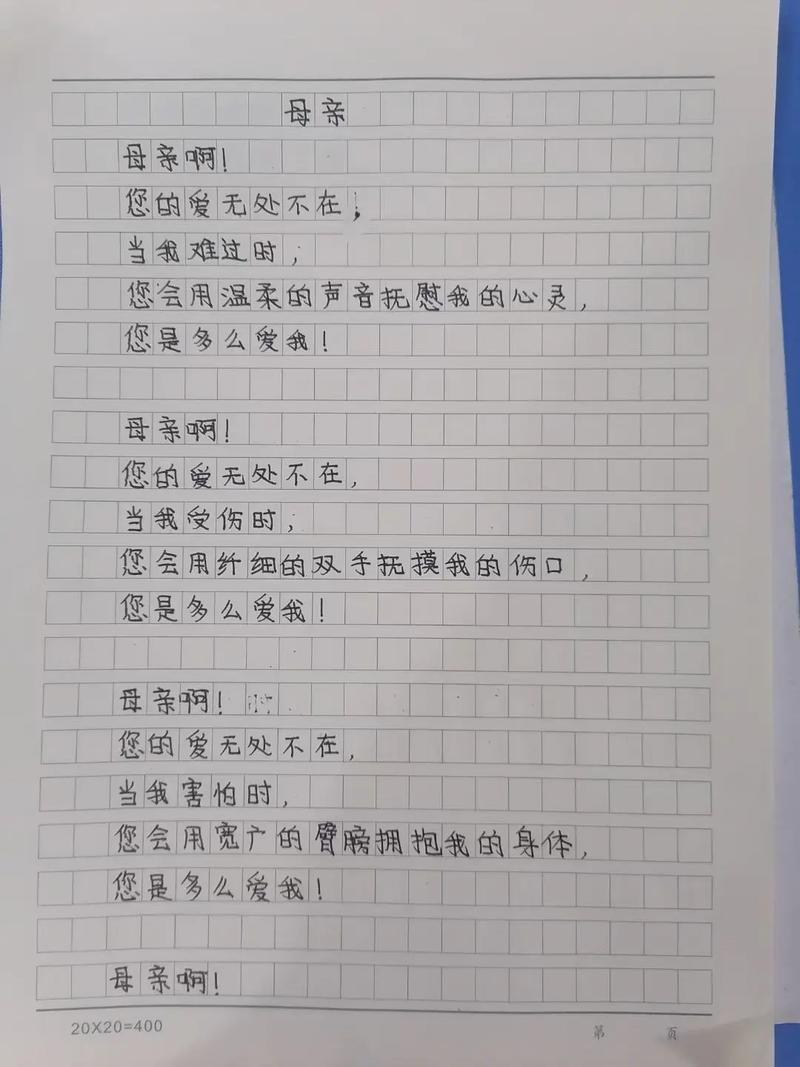 母亲
母亲啊！
您的爱无处不在，
当我难过时，
您会用温柔的声音抚慰我的心灵，
您是多么爱我！
母亲啊！
您的爱无处不在，
当我受伤时，
您会用纤细的双手抚摸我的伤口，
您是多么爱我！
母亲啊！
您的爱无处不在，
当我害怕时，
您会用宽广的臂膀拥抱我的身体，
您是多么爱我！
母亲啊！
20X20=400
第 页